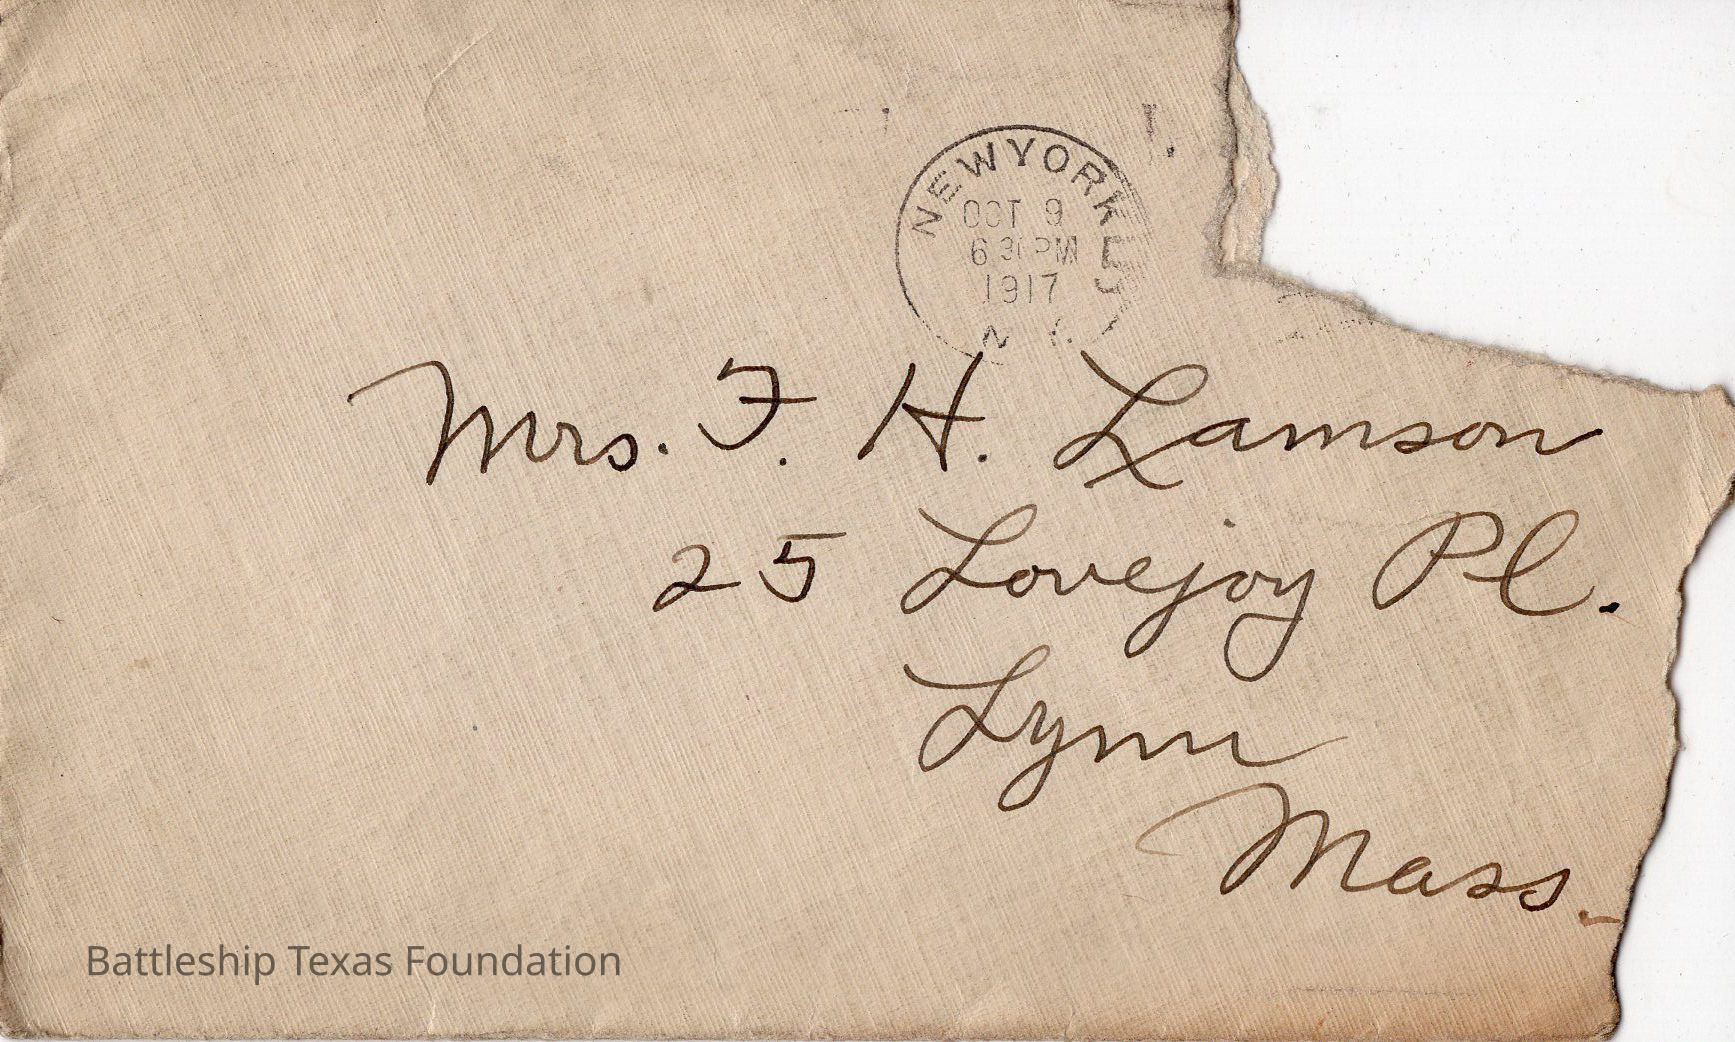 NEW YORK
OCT 9
6 30 PM
1917
N.Y.
Mrs. F. H. Lamson
25 Lovejoy Pl.
Lynn
Mass.
Battleship Texas Foundation